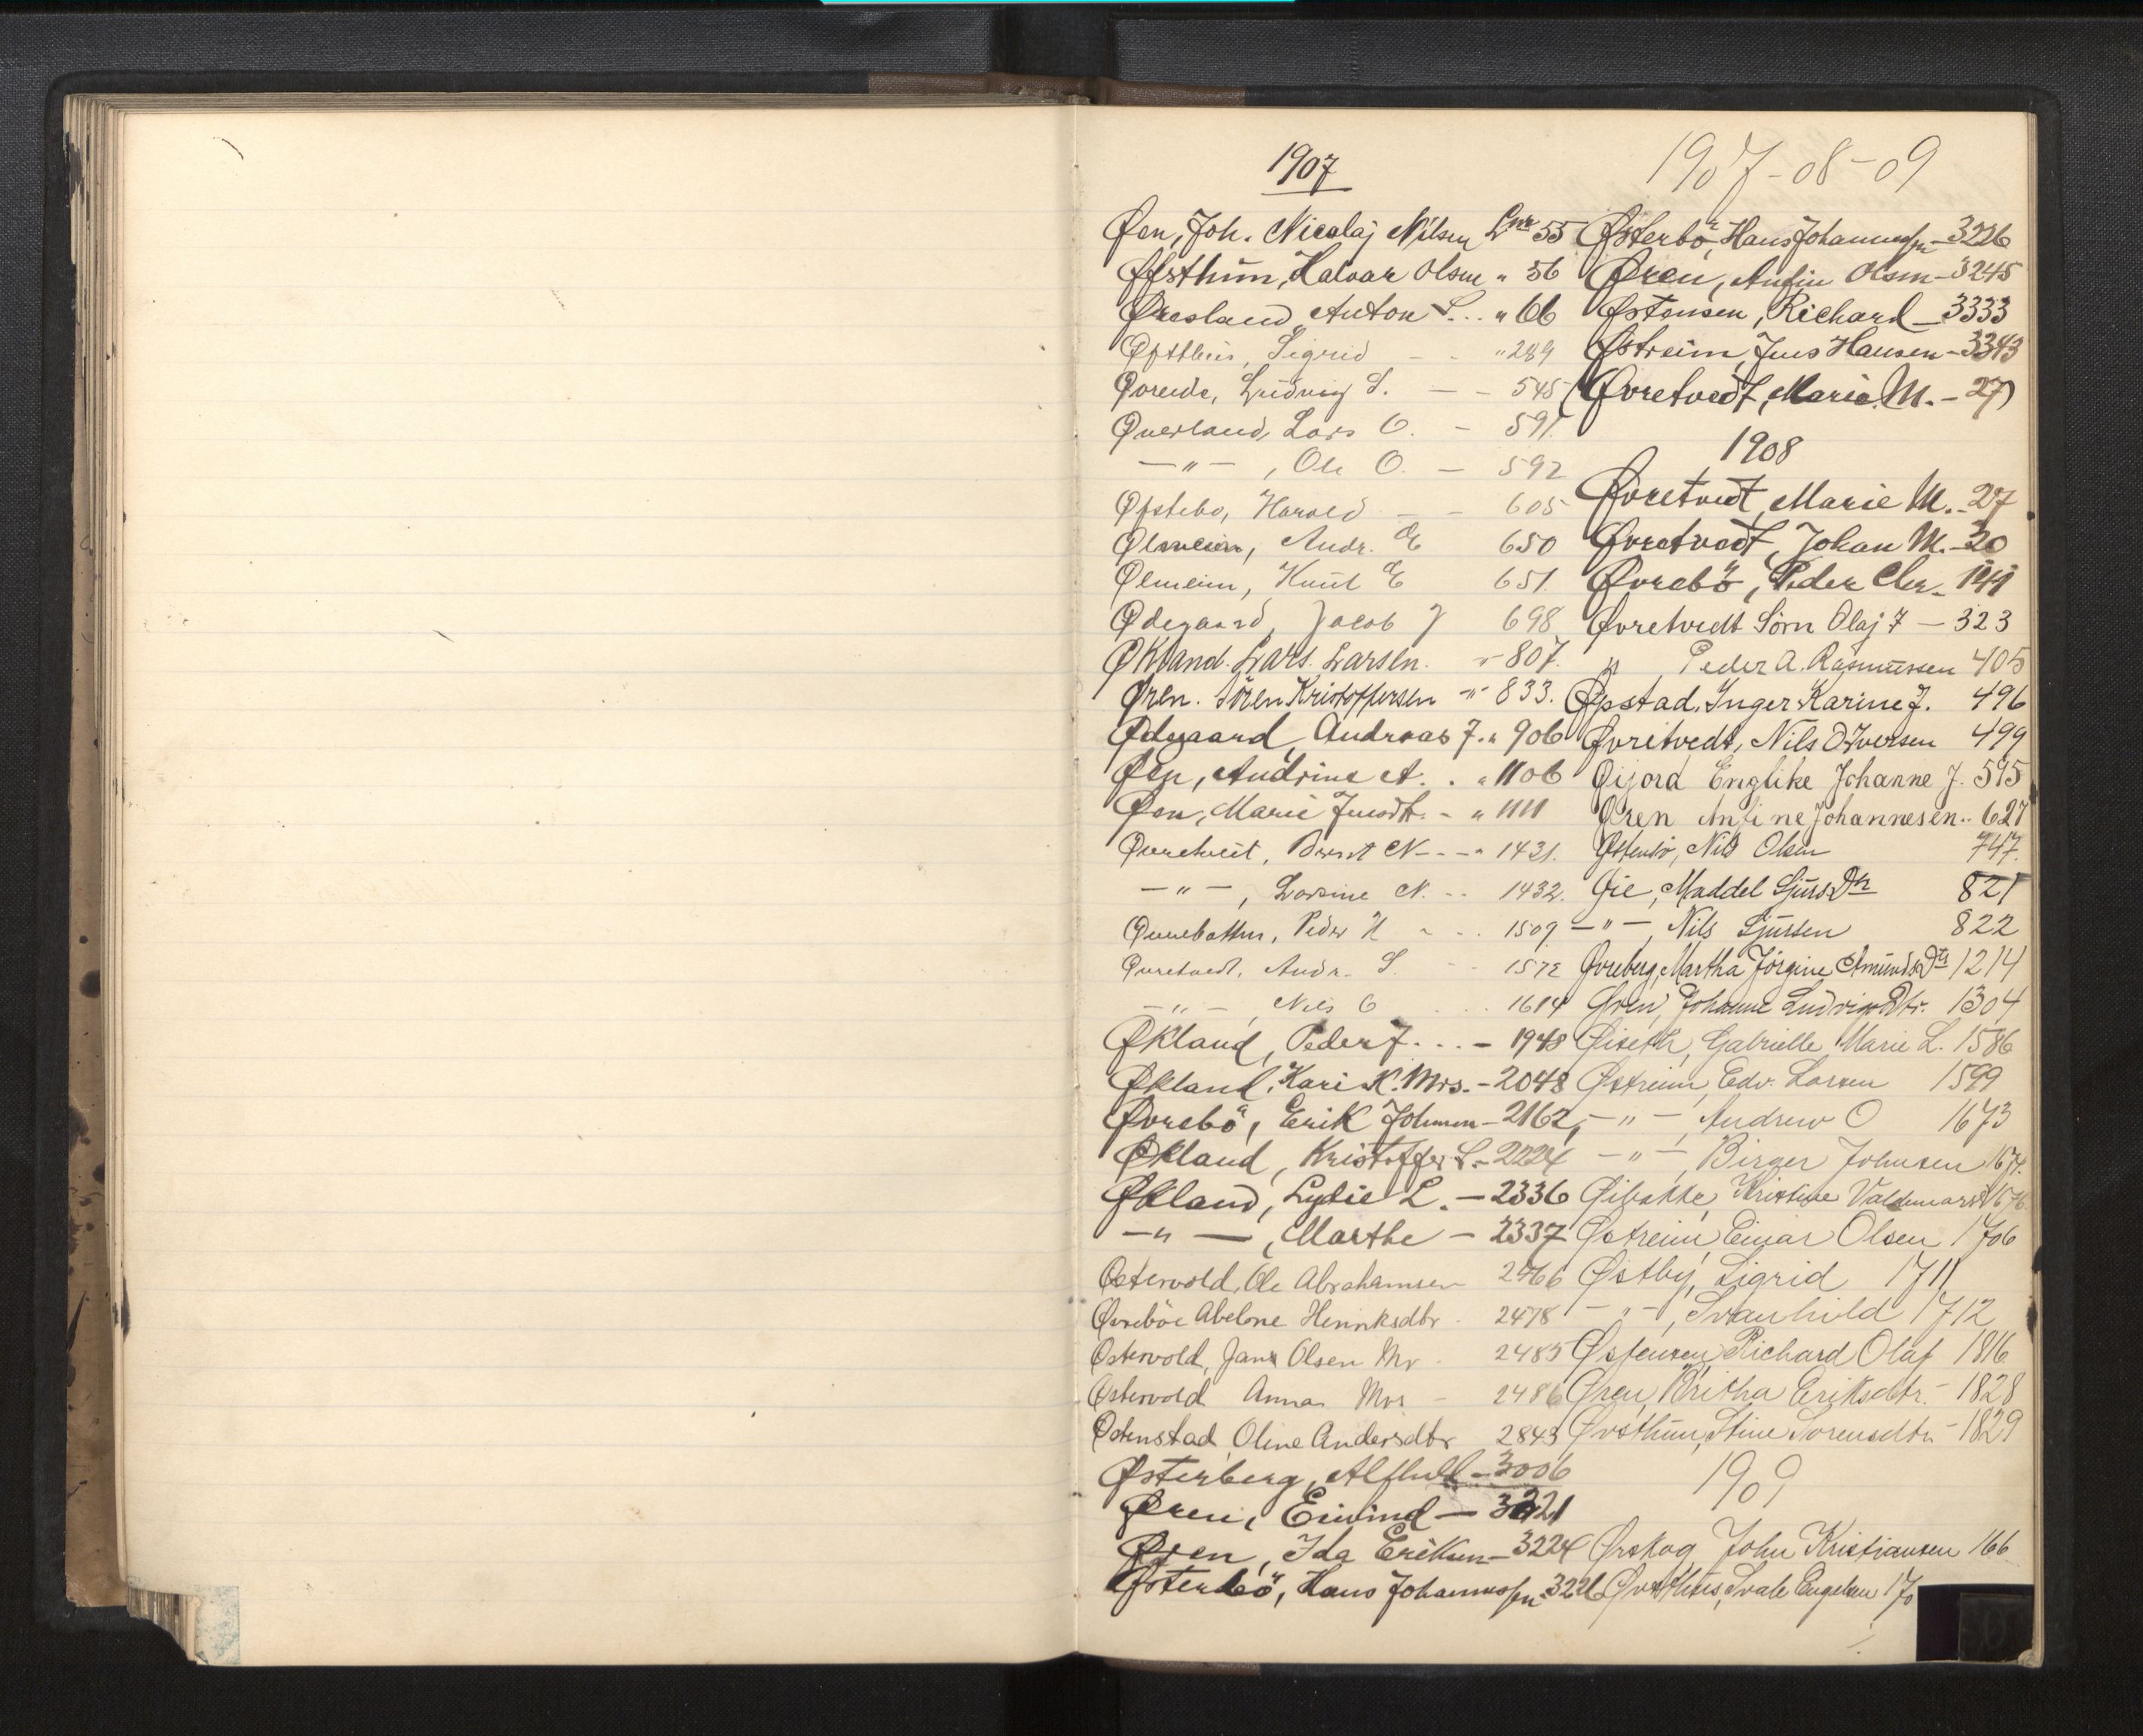 1907
Øen, Joh. Nicolaj Nilsen Lnr 55
Øfsthun, Halvar Olsen " 56
Øresland Anton L... " 66
Øfsthus, Sigrid - - " 289
Øvreide, Ludvig S. - - 545
Øverland, Lars O. - 591.
-"-, Ole O. - 592
Øfstebo, Harald - - 605
Ølmeim, Andr. E 650
Ølmeim, Knut E 651.
Ødegaard, Jacob J 698
Økland. Lars. Larsen. -"- 807.
Øren. Sören Kristoffersen -"- 833.
Ødegaard, Andreas J. " 906
Øen, Andrine A. . " 1106
Øen, Marie Jensdtr. - " 1111
Øvretveit, Berent N - - - " 1431.
-"-, Larsine N. - - 1432.
Peder H - . . 1509
Øvretvedt, Andr. S. - - 1572
-"-, Nils O . . . 1614
Økland, Peder J. . . - 1948
Økland, Kari K. Mrs. - 2048
Øvrebö, Erik Johnsen - 2162
Økland, Kristoffer L. - 2224
Økland, Lydie L. - 2336
-"-, Marthe - 2337
Østervold, Ole Abrahamsen 2466
Øvreböe Abelone Henriksdtr - 2478
Østervold, Jans Olsen Mr - 2485
Østervold Anna Mrs - 2486
Østenstad Oline Andersdtr 2843
Østerberg, Alfhild - 3006
Øren, Eivind - 3221
Øren, Ida Eriksen - 3224
Østerbö, Hans Johannessen 3226
1907-08-09
Østerbö, Hans Johannessen - 3226
Øren, Anfin Olsen - 3245
Østensen, Richard - 3333
Østreim, Jens Hansen - 3343
(Øvretvedt, Marie M. - 27)
1908
Øvretvedt, Marie M. - 27
Øvretvedt, Johan M. - 30
Øvrebö, Peder Chr. - 141
Øvretvedt Sörn Olaj 7 - 323
" Peder A. Rasmussen 405
Øpstad, Inger Karine J. 496
Øvretvedt, Nils D Iversen 499
Øijord Englike Johanne J. 595
Øren Anfine Johannesen.. 627
Østenbö, Nils Olsen 747.
Øie, Maddel SjursDtr 821
-"-, Nils Sjursen 822
Øvreberg, Martha Jörgine AmundsDtr 1214
Øren, Johanne LudvigsDtr. 1304
Øiseth, Gabrielle Marie L. 1586
Østreim, Edv. Larsen 1599
-"-, Andrew O 1673
-"-, Birger Johnsen 1674.
Øibakke, Kristine Valdemarsd 1676
Østreim, Einar Olsen 1706
Østby, Sigrid 1711
-"-, Svanhild 1712
Østensen, Richard Olaf 1816
Øren, Britha Eriksdtr. - 1828
Øvsthun, Stine Sorensdtr - 1829
1909
Ørskog, John Kristiansen 166
Øvsthus, Svale Engelsen 170